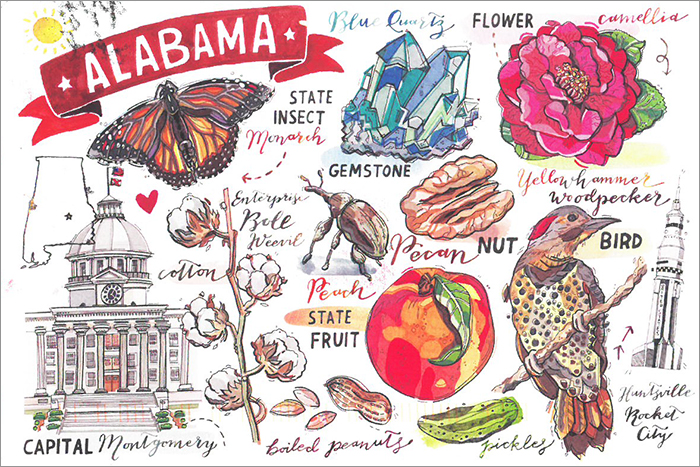 ALABAMA
Blue Quartz
GEMSTONE
FLOWER
camellia
STATE
INSECT
Monarch
Enterprise
Boll
Weevil
cotton
Pecan
NUT
Yellowhammer
woodpecker
BIRD
Peach
STATE
FRUIT
Huntsville
Rocket
City
CAPITAL Montgomery
boiled peanuts
pickles